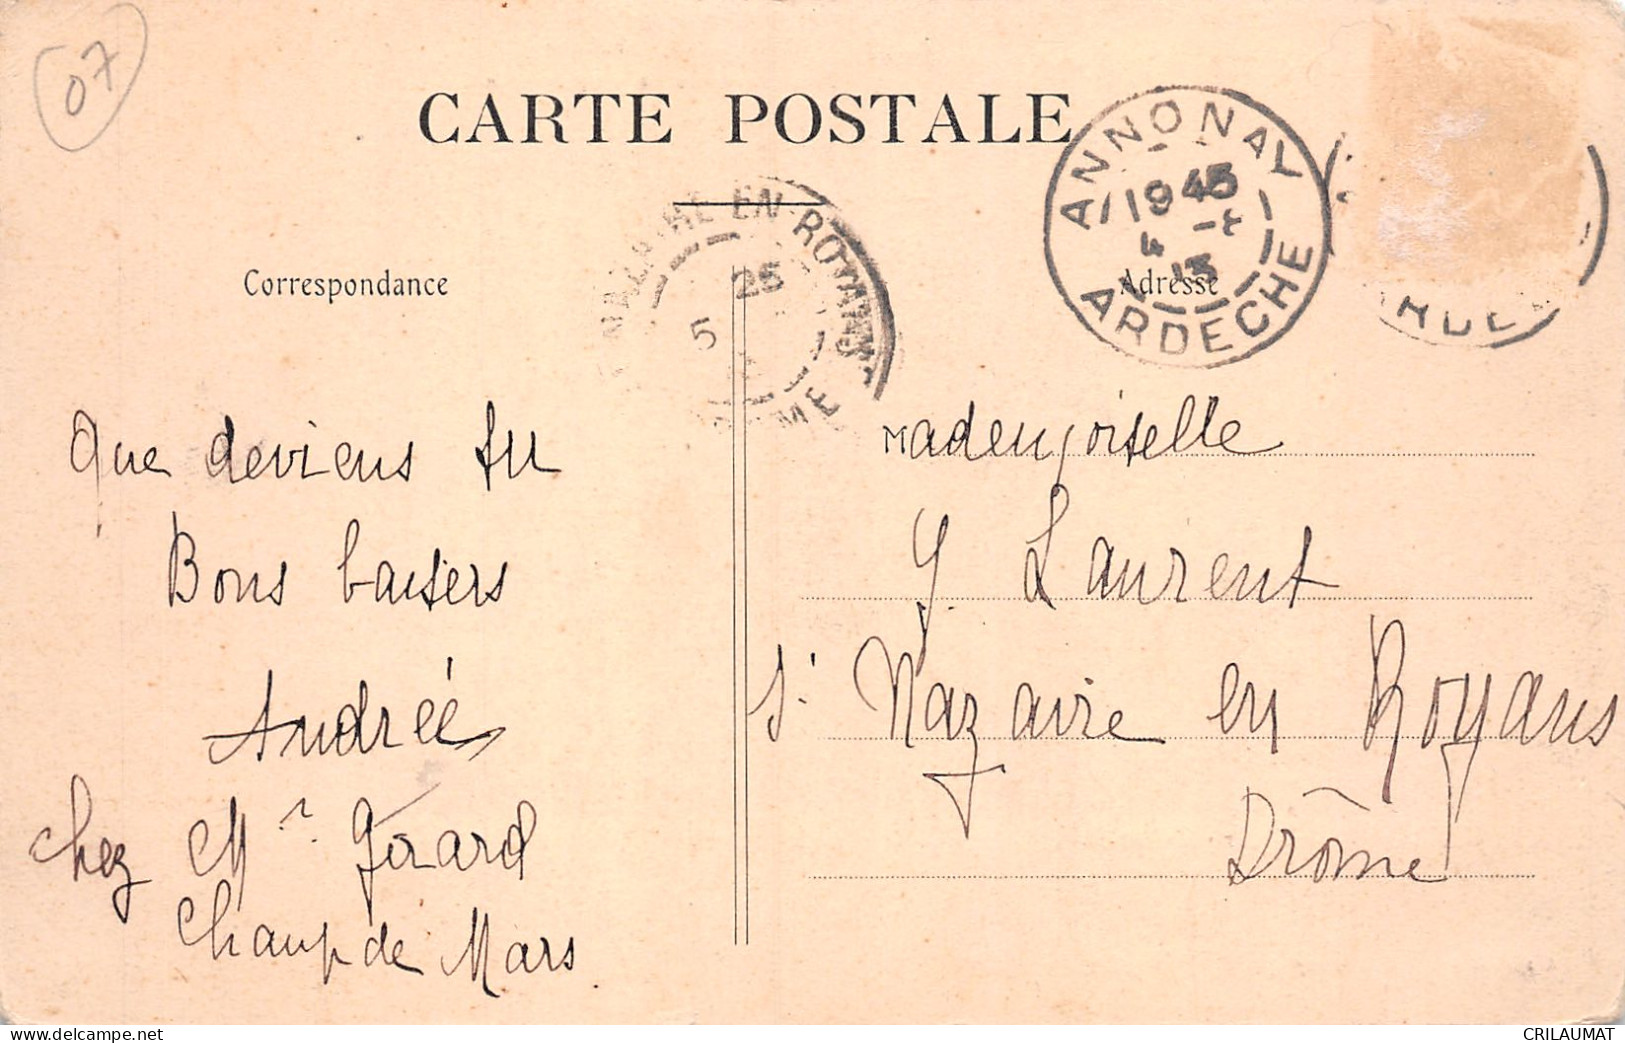 07
CARTE POSTALE
ANNONAY
1945
ARDECHE
EN-ROYANS
25
5
Correspondance
Adresse
Que deviens tu
Bons baisers
Andrée
chez Mr Girard
Champ de Mars
Mademoiselle
Y. Laurent
St Nazaire en Royans
Drôme
www.delcampe.net
CRILAUMAT